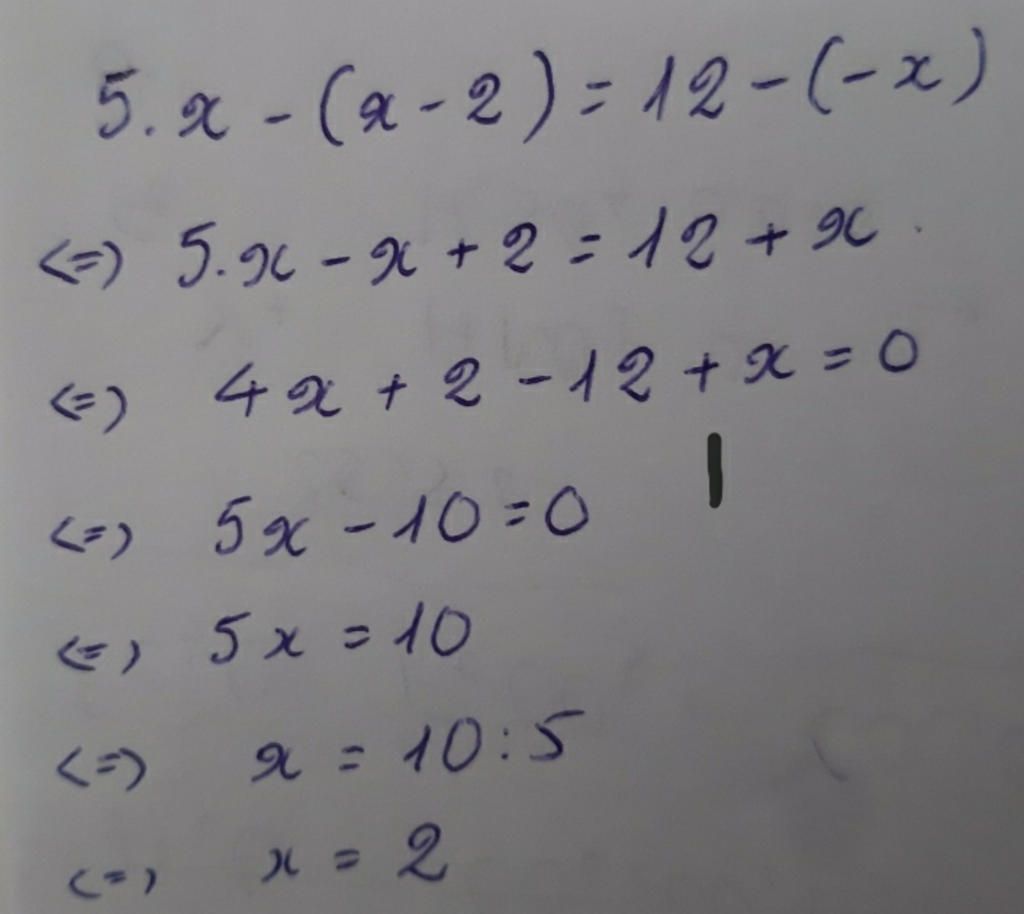 5.x - (x - 2) = 12 - (-x)
<=> 5.x - x + 2 = 12 + x
<=> 4x + 2 - 12 + x = 0
<=> 5x - 10 = 0
<=> 5x = 10
<=> x = 10:5
<=> x = 2